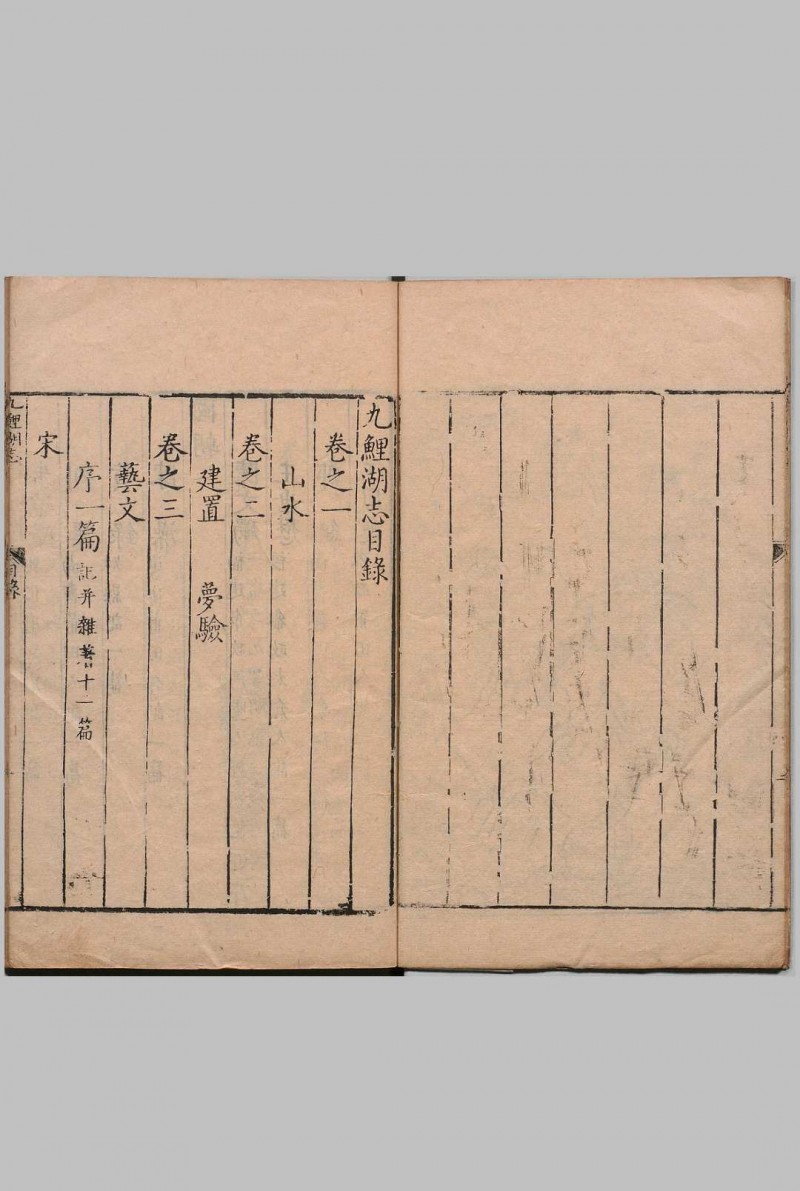 九鯉湖志目錄
卷之一
山水
卷之二
建置 夢驗
卷之三
藝文
序一篇 記并雜著十一篇
宋
九鯉湖志 目錄